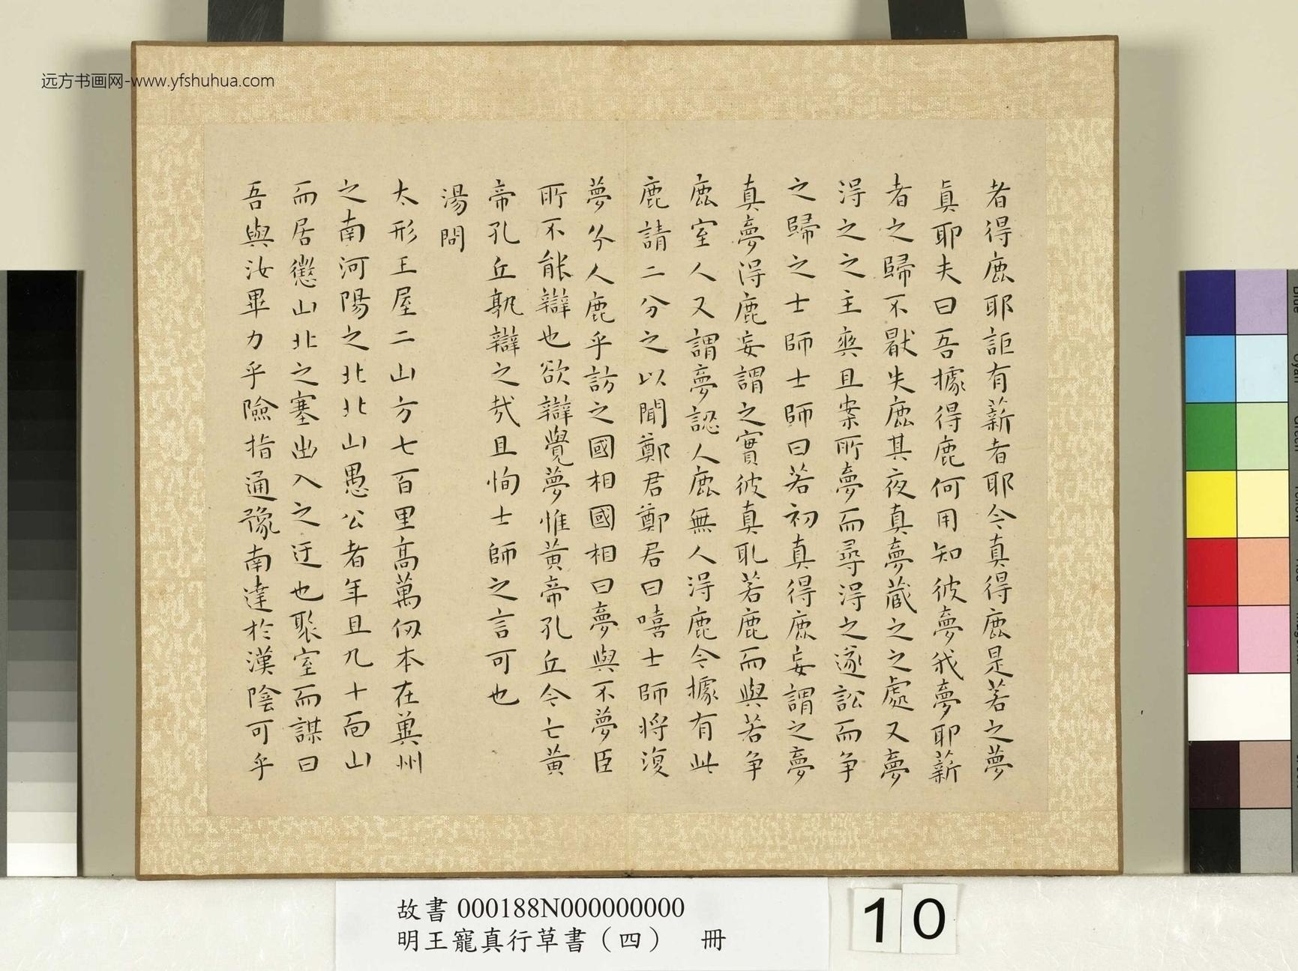 远方书画网-www.yfshuhua.com
者得鹿耶詎有薪者耶今真得鹿是若之夢
真耶夫曰吾據得鹿何用知彼夢我夢耶薪
者之歸不厭失鹿其夜真夢藏之之處又夢
得之之主爽旦案所夢而尋得之遂訟而爭
之歸之士師士師曰若初真得鹿妄謂之夢
真夢得鹿妄謂之實彼真取若鹿而與若爭
鹿室人又謂夢認人鹿無人得鹿今據有此
鹿請二分之以聞鄭君鄭君曰嘻士師將復
夢分人鹿乎訪之國相國相曰夢與不夢臣
所不能辯也欲辯覺夢惟黃帝孔丘今亡黃
帝孔丘孰辯之哉且恂士師之言可也
湯問
太形王屋二山方七百里高萬仞本在冀州
之南河陽之北北山愚公者年且九十面山
而居懲山北之塞出入之迂也聚室而謀曰
吾與汝畢力乎險指通豫南達於漢陰可乎
故書 000188N000000000
明王寵真行草書（四） 冊
10